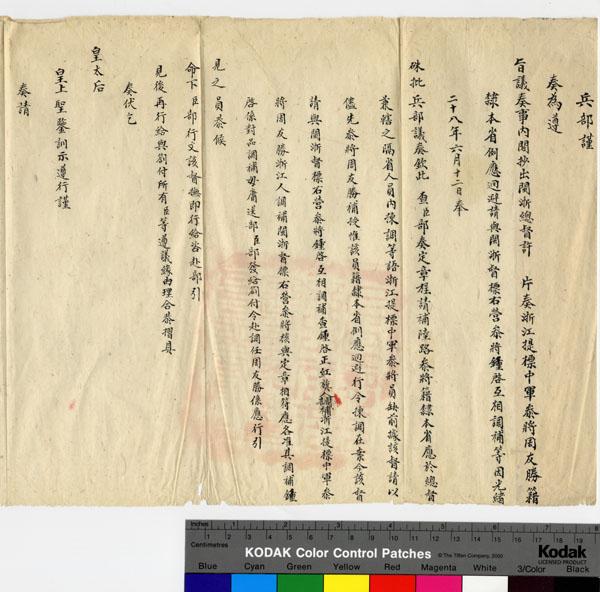 兵部謹
奏為遵
旨議奏事內閣抄出閩浙總督許 片奏浙江提標中軍叅將周友勝籍
隸本省例應迴避請與閩浙督標右營叅將鍾啓互相調補等因光緒
二十八年六月十二日奉
硃批兵部議奏欽此 查臣部奏定章程請補陸路叅將籍隸本省應於總督
兼轄之隔省人員內揀調等語浙江提標中軍叅將員缺前據該督請以
儘先叅將周友勝補授惟該員籍隸本省例應迴避行令揀調在案今該督
請與閩浙督標右營叅將鍾啓互相調補查鍾啓正紅旗 調補浙江提標中軍叅
將周友勝浙江人調補閩浙督標右營叅將核與定章相符應各准其調補鍾
啓係對品調補毋庸送部臣部發給劄付令赴調任周友勝係應行引
見之員恭候
命下臣部行文該督撫即行給咨赴部引
見後再行給與劄付所有臣等遵議緣由理合恭摺具
奏伏乞
皇太后
皇上聖鑒訓示遵行謹
奏請
Inches
Centimetres
KODAK Color Control Patches
© The Tiffen Company, 2000
Kodak
LICENSED PRODUCT
Blue Cyan Green Yellow Red Magenta White 3/Color Black